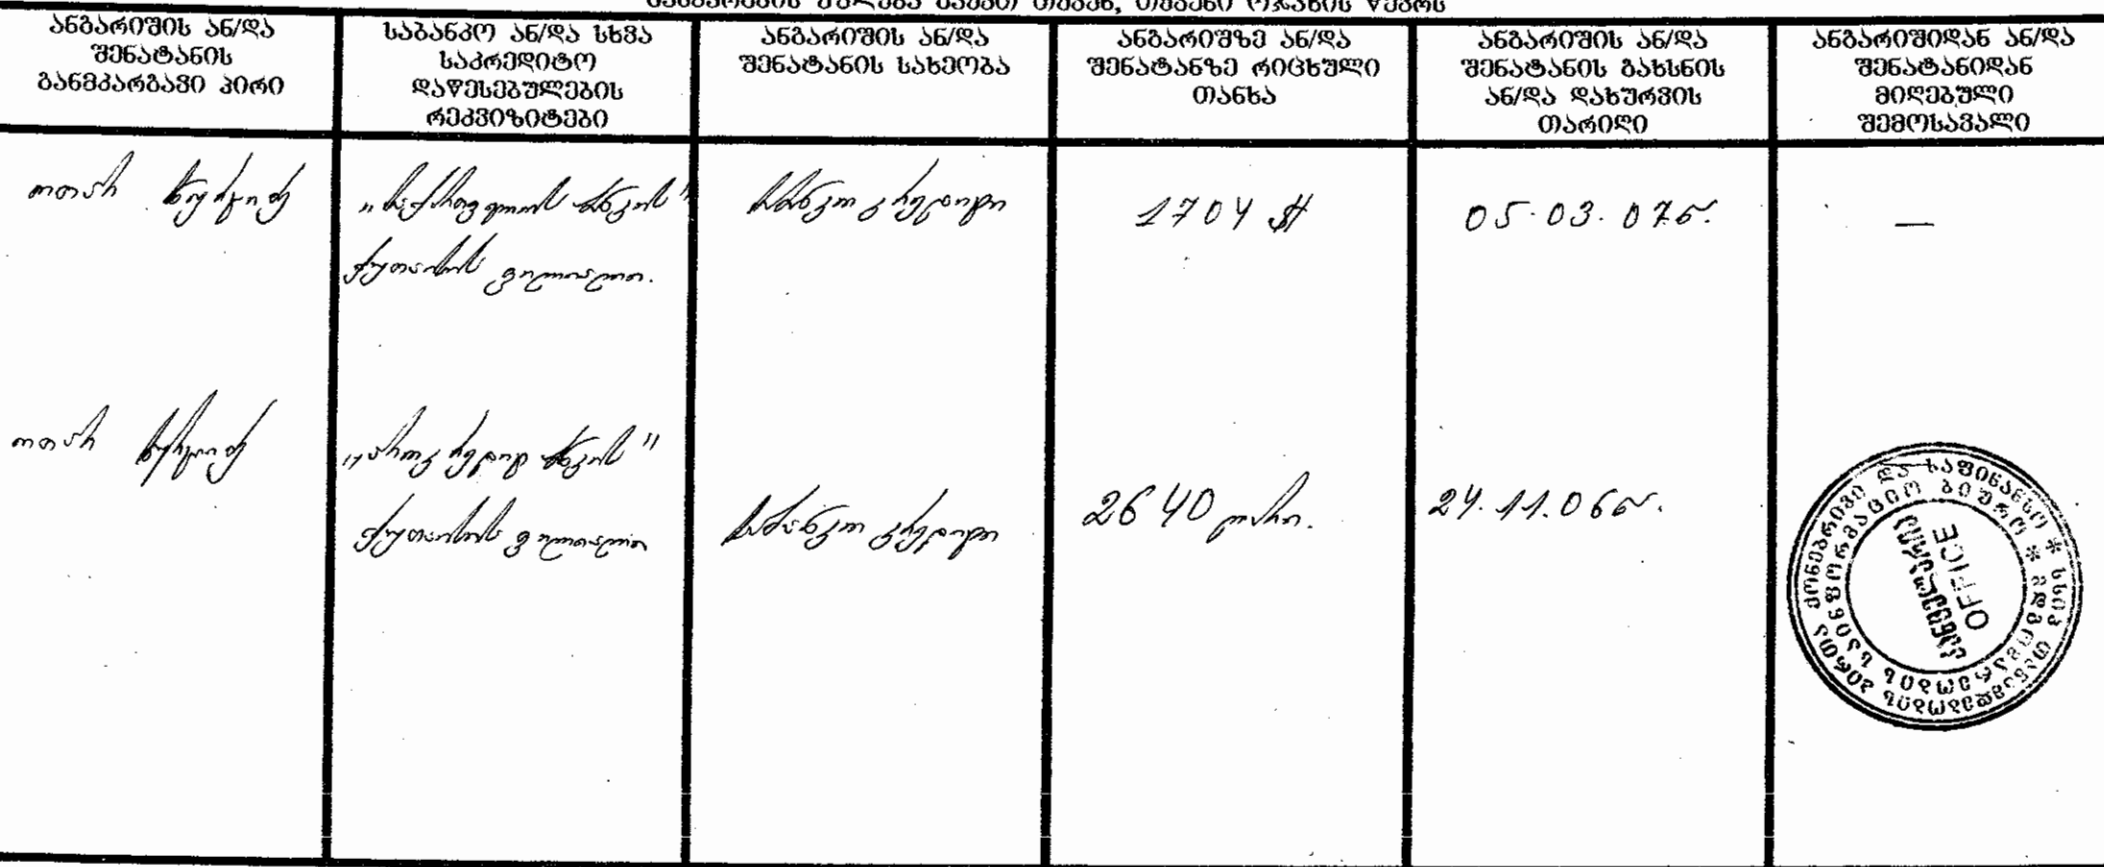 ანგარიშის ან/და
შენატანის
განმკარგავი პირი
საბანკო ან/და სხვა
საკრედიტო
დაწესებულების
რეკვიზიტები
ანგარიშის ან/და
შენატანის სახეობა
ანგარიშზე ან/და
შენატანზე რიცხული
თანხა
ანგარიშის ან/და
შენატანის გახსნის
ან/და დახურვის
თარიღი
ანგარიშიდან ან/და
შენატანიდან
მიღებული
შემოსავალი
ოთარ
„საქართველოს ბანკის"
ქუთაისის ფილიალი.
საბანკო კრედიტი
1704 $
05.03.07წ.
—
ოთარ
„პროკრედიტ ბანკის"
ქუთაისის ფილიალი
საბანკო კრედიტი
2640 ლარი.
24.11.06წ.
კანცელარია
OFFICE